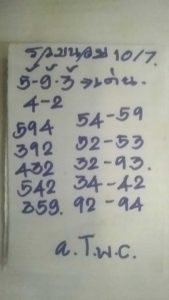 รวบนอน 10/7
5-9-3 → เด่น.
4-2
594 54-59
392 52-53
432 32-93.
542 34-42
359. 92-94
a.T.พ.c.